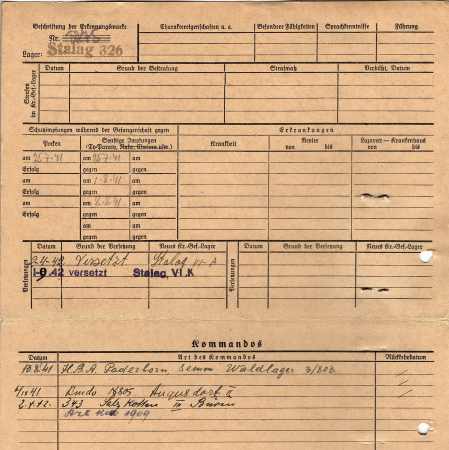 Beschriftung der Erkennungsmarke Charaktereigenschaften u. a. Besondere Fähigkeiten Sprachkenntnisse Führung
Nr.
Lager: Stalag 326
Strafen im Kr.-Gef.-Lager
Datum Grund der Bestrafung Strafmaß Verbüßt, Datum
Schutzimpfungen während der Gefangenschaft gegen Erkrankungen
Pocken Sonstige Impfungen (Ty-Paraty, Ruhr, Cholera usw.) Krankheit Revier von bis Lazarett — Krankenhaus von bis
am 25.7.41 am 25.7.41
Erfolg gegen
am am 1.8.41
Erfolg gegen
am am 8.8.41
Erfolg gegen
am
gegen
Versetzungen Datum Grund der Versetzung Neues Kr.-Gef.-Lager Versetzungen Datum Grund der Versetzung Neues Kr.-Gef.-Lager
2.4.42 Versetzt Stalag VI A
.42 versetzt Stalag VI K
Kommandos
Datum Art des Kommandos Rückkehrdatum
10.8.41 H.B.A. Paderborn Senne Waldlager
41 805 Augustdorf II
2.4.42. 343 Salzkotten Büren
1909